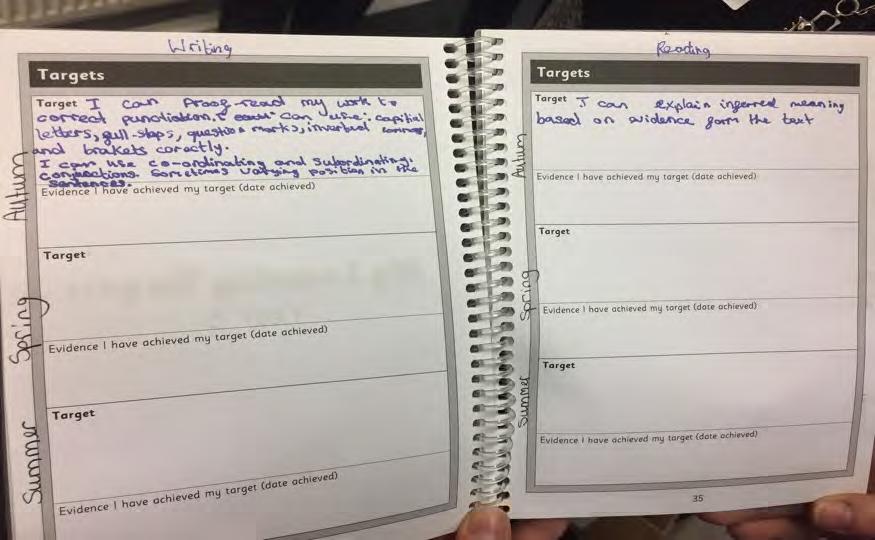 Writing
Targets
Target I can Proof-read my work to
correct punctiation. I can use; capitial
letters, full-stops, question marks, inverted commas,
and brakets corectly.
I can use co-ordinating and subordinating
conjunctions. Sometimes varying position in the
sentences.
Autum
Evidence I have achieved my target (date achieved)
Target
Spring
Evidence I have achieved my target (date achieved)
Target
Summer
Evidence I have achieved my target (date achieved)
Reading
Targets
Target I can explain inferred meaning
based on evidence form the text
Autum
Evidence I have achieved my target (date achieved)
Target
Spring
Evidence I have achieved my target (date achieved)
Target
Summer
Evidence I have achieved my target (date achieved)
35